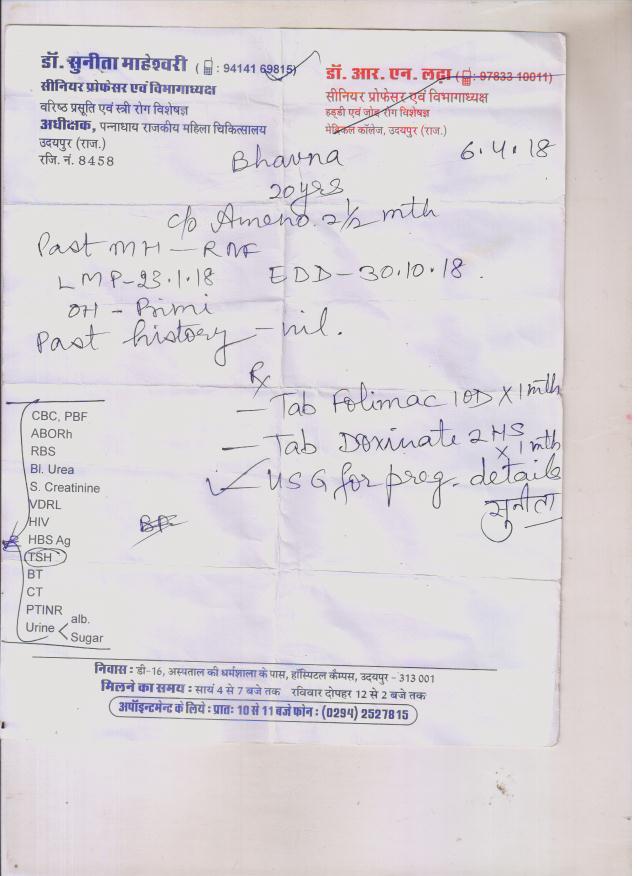 डॉ. सुनीता माहेश्वरी ( : 94141 69815)
सीनियर प्रोफेसर एवं विभागाध्यक्ष
वरिष्ठ प्रसूति एवं स्त्री रोग विशेषज्ञ
अधीक्षक, पन्नाधाय राजकीय महिला चिकित्सालय
उदयपुर (राज.)
रजि. नं. 8458
डॉ. आर. एन. लढ़ा ( : 97833 10011)
सीनियर प्रोफेसर एवं विभागाध्यक्ष
हड्डी एवं जोड़ रोग विशेषज्ञ
मेडिकल कॉलेज, उदयपुर (राज.)
6.4.18
Bhavna
20yrs
c/o Ameno. 2½ mth
Past MH - RNF
LMP-23.1.18 EDD-30.10.18.
OH - Primi
Past history - nil.
Rx
- Tab Folimac 1OD X 1 mth
- Tab Doxinate 2 HS x 1 mth
✓ USG for preg. details
सुनीता
CBC, PBF
ABORh
RBS
Bl. Urea
S. Creatinine
VDRL
HIV
HBS Ag
TSH
BT
CT
PTINR
Urine < alb.
Sugar
निवास : डी-16, अस्पताल की धर्मशाला के पास, हॉस्पिटल कैम्पस, उदयपुर - 313 001
मिलने का समय : सायं 4 से 7 बजे तक रविवार दोपहर 12 से 2 बजे तक
अपॉइन्टमेन्ट के लिये : प्रातः 10 से 11 बजे फोन : (0294) 2527815